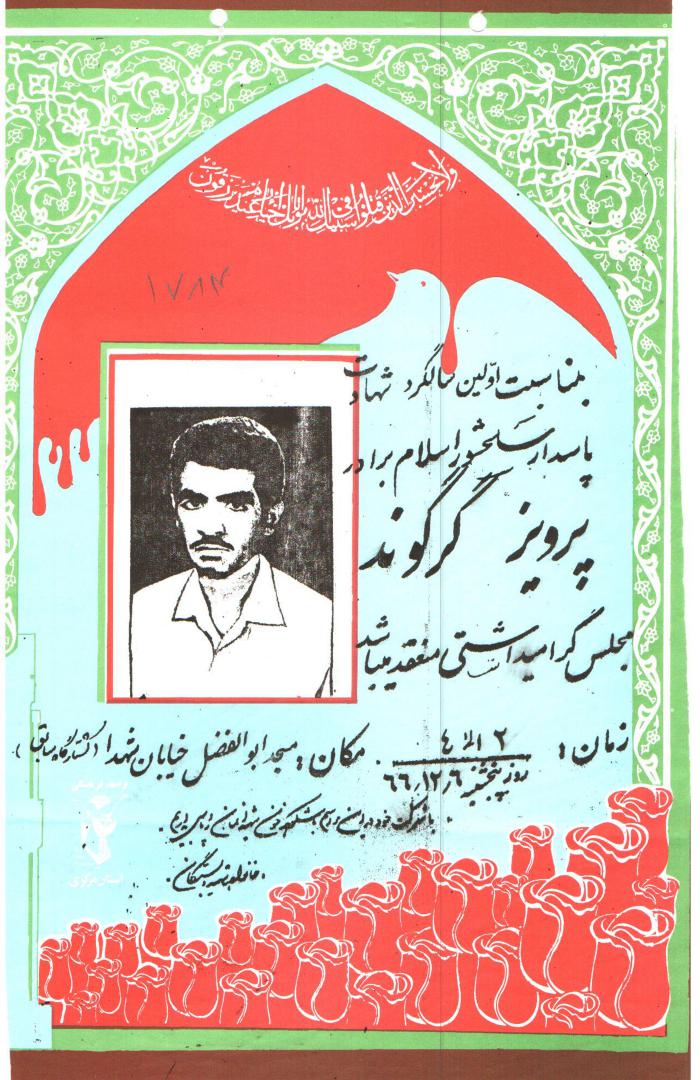 ولا تحسبن الذین قتلوا فی سبیل الله امواتا بل احیاء عند ربهم یرزقون
۱۷۸۳
بمناسبت اولین سالگرد شهادت
پاسدار سلحشور اسلام برادر
پرویز گرگوند
مجلس گرامیداشتی منعقد میباشد
زمان: ۲ الی ٤
روز پنجشنبه ۶۶٫۱۲٫۶
مکان: مسجد ابوالفضل خیابان شهدا (کشتارگاه سابق).
با شرکت خود در این
خانواده
استان مرکزی